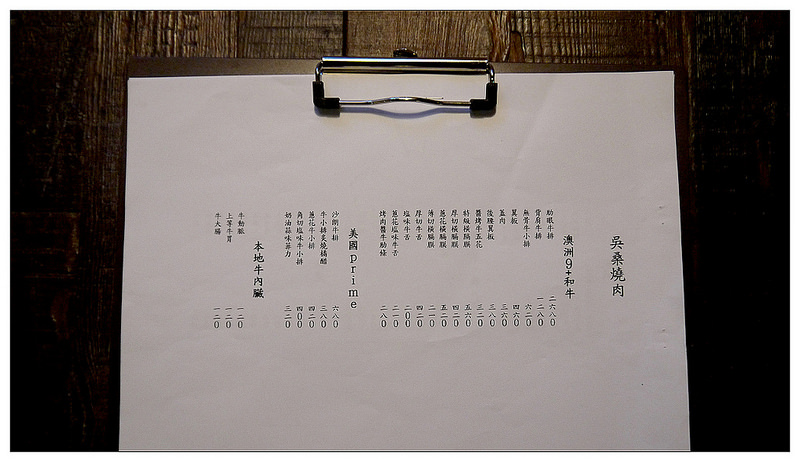 吳桑燒肉
澳洲9+和牛
肋眼牛排 二六八〇
背肩牛排 一二八〇
無骨牛小排 六二〇
翼板 四六〇
蓋肉 三六〇
後腰翼板 三八〇
醬烤牛五花 三二〇
特級橫膈膜 五六〇
厚切橫膈膜 四二〇
蔥花橫膈膜 五二〇
薄切橫膈膜 二一〇
厚切牛舌 四二〇
塩味牛舌 二〇〇
蔥花塩味牛舌 二一〇
烤肉醬牛肋條 二八〇
美國prime
沙朗牛排 六八〇
牛小排炙燒橘醋 三八〇
蔥花牛小排 四二〇
角切塩味牛小排 四〇〇
奶油蒜味菲力 三二〇
本地牛內臟
牛動脈 一二〇
上等牛胃 一二〇
牛大腸 一二〇